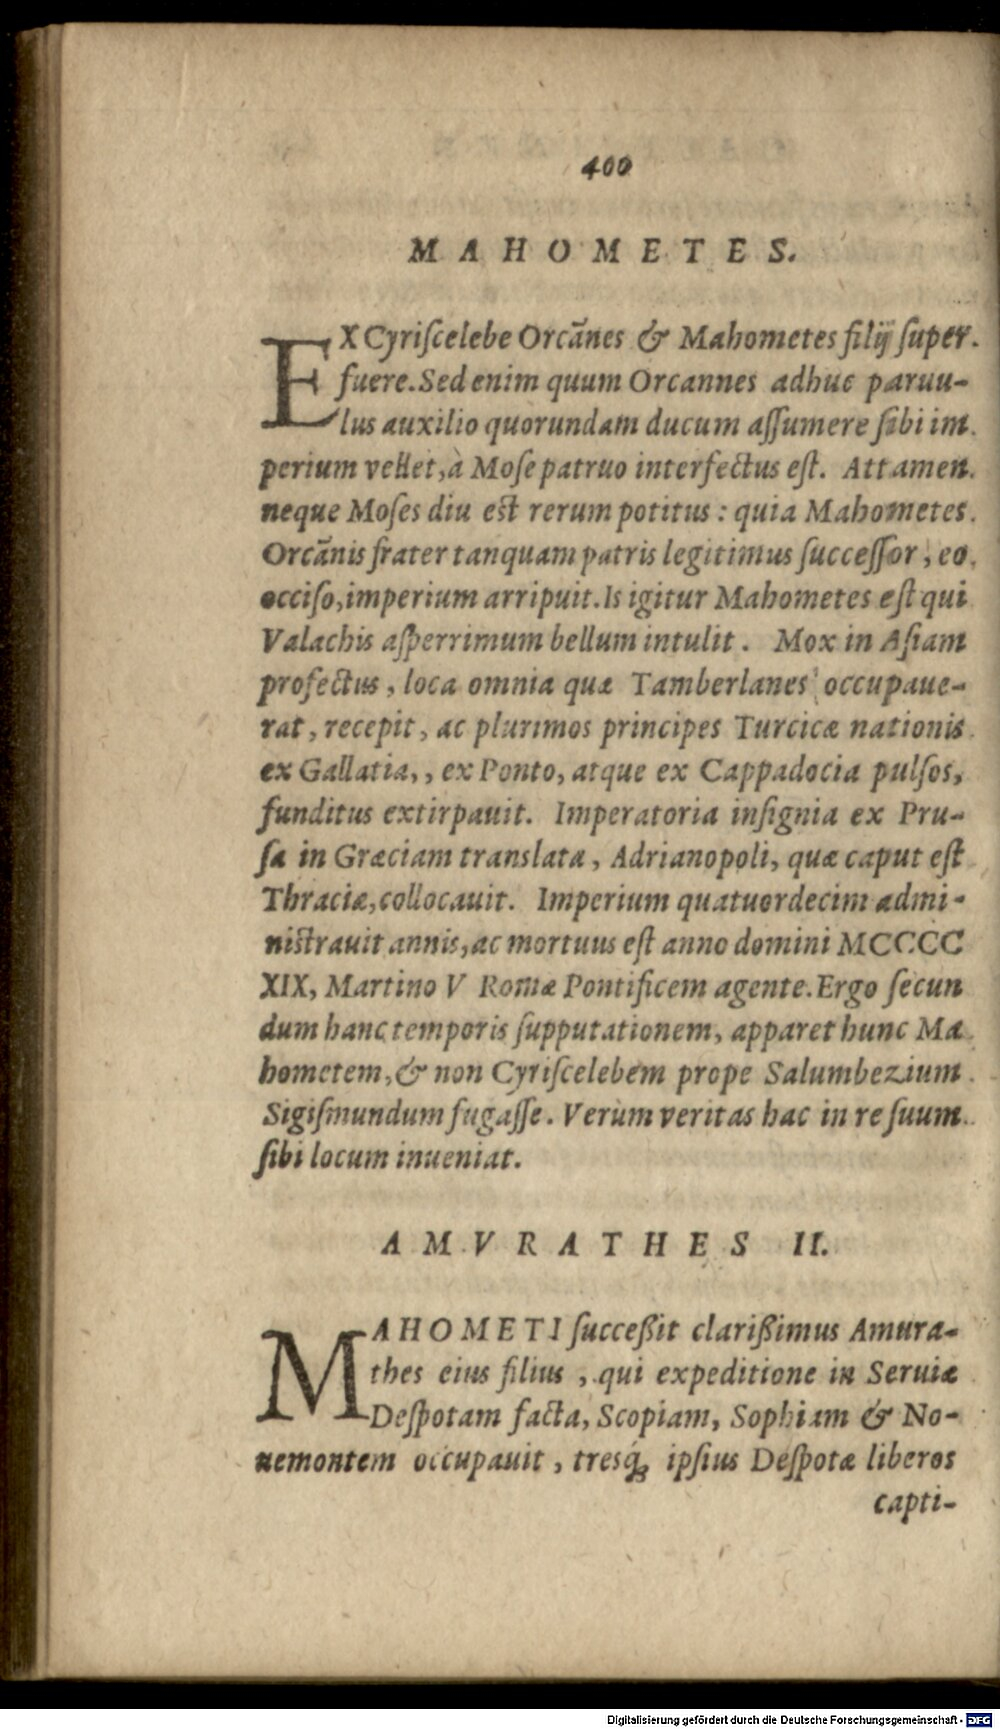 400
MAHOMETES.
EX Cyriſcelebe Orcānes & Mahometes filij ſuper.
fuere. Sed enim quum Orcannes adhuc paruu-
lus auxilio quorundam ducum aſſumere ſibi im
perium vellet, à Moſe patruo interfectus eſt. Attamen
neque Moſes diu eſt rerum potitus: quia Mahometes
Orcānis frater tanquam patris legitimus ſucceſſor, eo
occiſo, imperium arripuit. Is igitur Mahometes eſt qui
Valachis aſperrimum bellum intulit. Mox in Aſiam
profectus, loca omnia quæ Tamberlanes occupaue-
rat, recepit, ac plurimos principes Turcicæ nationis
ex Gallatia,, ex Ponto, atque ex Cappadocia pulſos,
funditus extirpauit. Imperatoria inſignia ex Pru-
ſa in Græciam translata, Adrianopoli, quæ caput eſt
Thraciæ, collocauit. Imperium quatuordecim admi-
niſtrauit annis, ac mortuus eſt anno domini MCCCC
XIX, Martino V Romæ Pontificem agente. Ergo ſecun
dum hanc temporis ſupputationem, apparet hunc Ma
hometem, & non Cyriſcelebem prope Salumbezium
Sigiſmundum fugaſſe. Verùm veritas hac in re ſuum
ſibi locum inueniat.
AMVRATHES II.
MAHOMETI ſucceßit clarißimus Amura-
thes eius filius, qui expeditione in Seruiæ
Deſpotam facta, Scopiam, Sophiam & No-
uemontem occupauit, tresq́; ipſius Deſpotæ liberos
capti-
Digitalisierung gefördert durch die Deutsche Forschungsgemeinschaft - DFG